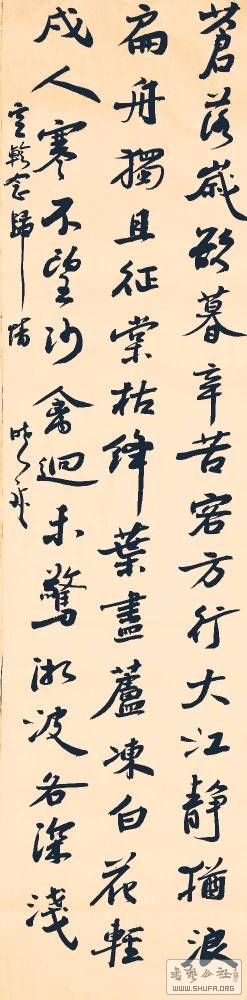 蒼落歲欲暮辛苦客方行大江靜猶浪
扁舟獨且征棠枯絳葉盡蘆凍白花輕
戍人寒不望沙禽迴未驚湘波各深淺
空軫念歸情
書藝公社
WWW.SHUFA.ORG